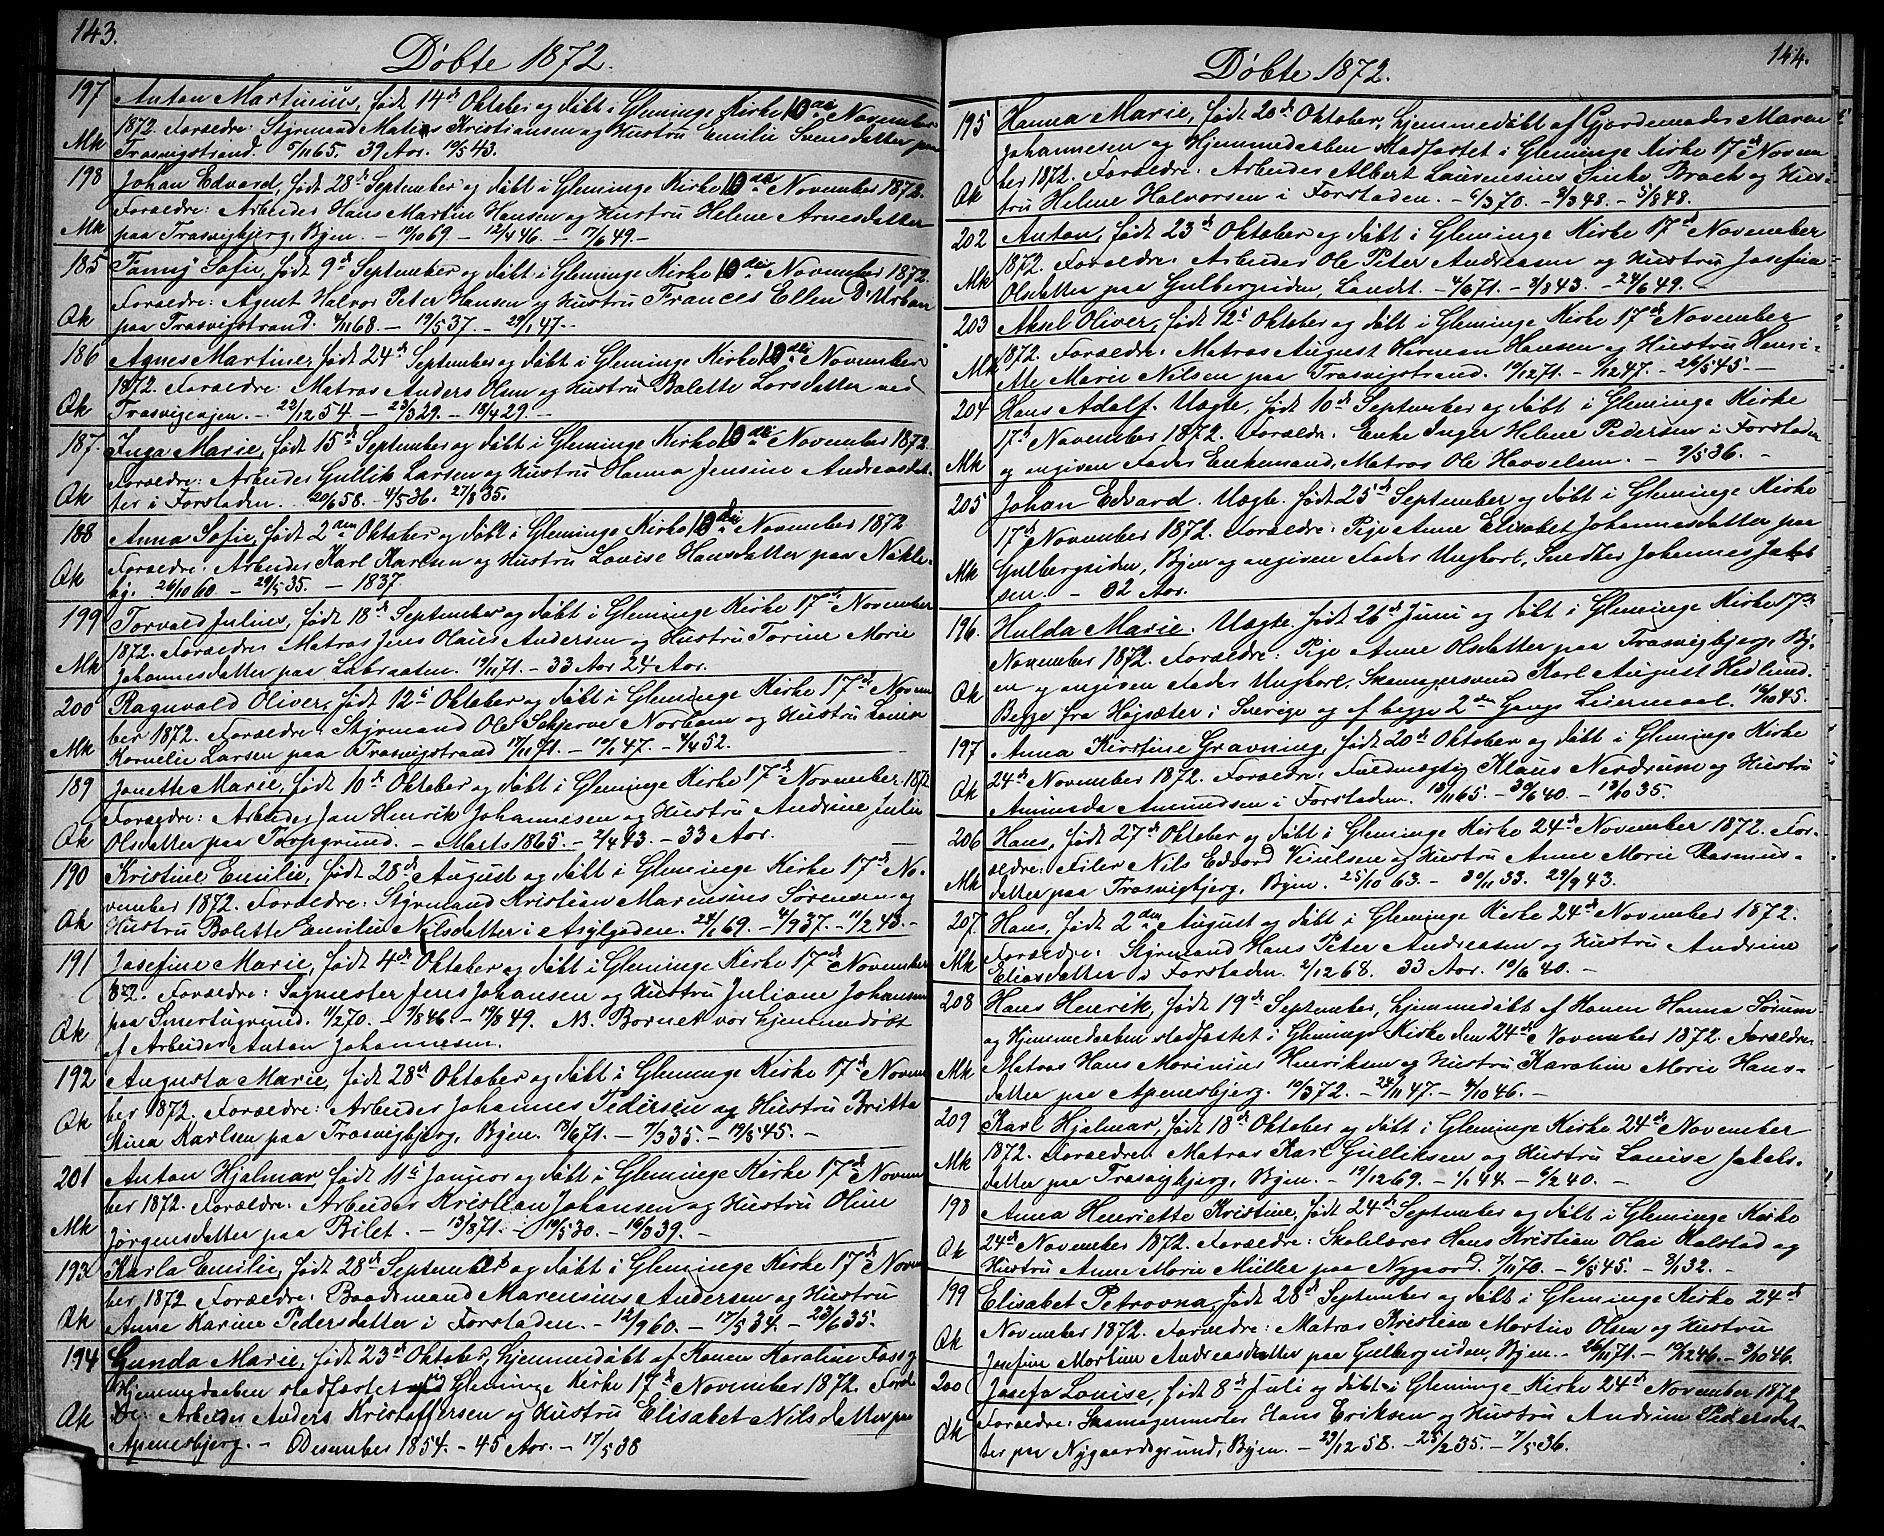 143.
Døbte 1872.
197 Anton Martinius, født 14de Oktober og døbt i Gleminge Kirke 10de November
1872. Forældre: Styrmand Matias Kristiansen og Hustru Emilie Svensdatter paa
Mk Trasvigstrand. 5/11 65. 39 Aar. 19/5 43.
198 Johan Edvard, født 28de September og døbt i Gleminge Kirke 10de November 1872.
Forældre: Arbeider Hans Martin Hansen og Hustru Helene Arnesdatter
Mk paa Trasvigbjerg, Byen. - 19/10 69 - 12/4 46. - 7/6 49. -
185 Fanny Sofie, født 9de September og døbt i Gleminge Kirke 10de November 1872.
Forældre: Agent Halvor Peter Hansen og Hustru Frances Ellen D'Urban
Qk paa Trasvigstrand. 4/11 68. - 19/5 37. - 29/1 47. -
186 Agnes Martine, født 24de September og døbt i Gleminge Kirke 10de November
1872. Forældre: Matros Anders Olsen og Hustru Bolette Larsdatter ved
Qk Trasvigeajen. - 22/12 54 - 23/3 29. - 18/4 29. -
187 Inga Marie, født 15de September og døbt i Gleminge Kirke 10de November 1872.
Forældre: Arbeider Gullik Larsen og Hustru Hanna Jensine Andreasdat-
Qk ter i Forstaden. 20/6 58. - 4/5 36. 27/8 35.
188 Anna Sofie, født 2den Oktober og døbt i Gleminge Kirke 10de November 1872
Forældre: Arbeider Karl Karlsen og Hustru Lovise Hansdatter paa Nikle-
Qk by. 26/10 60. - 29/5 35. - 1837
199 Torvald Julius, født 18de September og døbt i Gleminge Kirke 17de November
1872. Forældre Matros Jens Olaus Andersen og Hustru Torine Marie
Mk Johannesdatter paa Labraaten. 19/11 71. - 33 Aar 24 Aar.
200 Ragnvald Oliver, født 12te Oktober og døbt i Gleminge Kirke 17de Novem
ber 1872. Forældre: Styrmand Ole Schjerve Norbom og Hustru Lovise
Mk Kornelie Larsen paa Trasvigstrand 17/11 71. - 19/1 47. - 4/4 52.
189 Jonette Marie, født 10de Oktober og døbt i Gleminge Kirke 17de November 1872
Forældre: Arbeider Jan Henrik Johannesen og Hustru Andrine Julie
Qk Olsdatter paa Torpgrund. - Marts 1865. - 2/4 43. - 33 Aar.
190 Kristine Emilie, født 28de August og døbt i Gleminge Kirke 17de No-
vember 1872. Forældre: Styrmand Kristian Marensius Sørensen og
Qk Hustru Bolette Emilie Nilsdatter i Asylgaden. 24/1 69. - 4/9 37. - 11/2 43. -
191 Josefine Marie, født 4de Oktober og døbt i Gleminge Kirke 17de November
1872. Forældre: Sagmester Jens Johansen og Hustru Juliane Johansen
Qk paa Smertugrund. 11/2 70. - 7/8 46. - 19/8 49. NB. Barnet var hjemmedøbt
af Arbeider Anton Johannesen.
192 Augusta Marie, født 28de Oktober og døbt i Gleminge Kirke 17de Novem
ber 1872. Forældre: Arbeider Johannes Pedersen og Hustru Britta
Qk Stina Karlsen paa Trasvigbjerg, Byen. 18/6 71. - 7/3 35. - 19/8 45. -
201 Anton Hjalmar, født 11te Januar og døbt i Gleminge Kirke 17de Novem
ber 1872. Forældre: Arbeider Kristian Johansen og Hustru Oline
Mk Jørgensdatter paa Bilet. - 13/3 71. - 19/5 30. - 16/3 39. -
193 Karla Emilie, født 28de September og døbt i Gleminge Kirke 17de Novem
ber 1872 Forældre: Baadsmand Marensius Andersen og Hustru
Qk Anne Karine Pedersdatter i Forstaden. - 12/9 60. - 17/5 34. - 23/6 35.
194 Gunda Marie, født 23de Oktober, hjemmedøbt af Konen Karoline Foss og
Hjemmedaaben stadfæstet i Gleminge Kirke 17de November 1872. Foræl
Qk dre: Arbeider Anders Kristoffersen og Hustru Elisabet Nilsdatter paa
Apenesbjerg. - Desember 1854. - 45 Aar. - 17/5 38
144.
Døbte 1872.
195 Hanna Marie, født 20de Oktober, hjemmedøbt af Gjordemoder Maren
Johannesen og Hjemmedaaben stadfæstet i Gleminge Kirke 17de Novem
ber 1872. Forældre: Arbeider Albert Laurensius Sinke Brach og Hus-
Qk tru Helene Halvorsen i Forstaden. - 6/3 70. - 8/3 48. - 5/8 48.
202 Anton, født 23de Oktober og døbt i Gleminge Kirke 17de November
1872. Forældre: Arbeider Ole Peter Andreasen og Hustru Josefine
Mk Olsdatter paa Gulbergsiden, Landet. - 4/6 71. - 8/8 43. - 24/6 49.
203 Aksel Oliver, født 12te Oktober og døbt i Gleminge Kirke 17de November
1872. Forældre: Matros August Herman Hansen og Hustru Henri-
Mk ette Marie Nilsen paa Trasvigstrand. 19/12 71. - 1/12 47. - 26/5 45. -
204 Hans Adolf. Uægte, født 10de September og døbt i Gleminge Kirke
17de November 1872. Forældre: Enke Inger Helene Pedersen i Forstaden
Mk og angiven Fader Enkemand, Matros Ole Havelsen. - 9/5 36. -
205 Johan Edvard. Uægte. født 25de September og døbt i Gleminge Kirke
17de November 1872. Forældre: Pige Anne Elisabet Johannesdatter paa
Mk Gulbergsiden, Byen og angiven Fader Ungkarl, Snedker Johannes Jakob
sen. - 32 Aar.
196. Hulda Marie. Uægte. født 26de Juni og døbt i Gleminge Kirke 17de
November 1872. Forældre: Pige Anne Olsdatter paa Trasvigbjerg, By-
Qk en og angiven Fader Ungkarl, Skomagersvend Karl August Hedlund.
Begge fra Højsæter i Sverige og af begge 2den Gangs Leiermaal. 19/10 45.
197 Anna Kirstine Gravning, født 20de Oktober og døbt i Gleminge Kirke
24de November 1872. Forældre: Fuldmægtig Klaus Nerdrum og Hustru
Qk Aminda Amundsen i Forstaden. 18/11 65. - 30/6 40. - 19/10 35.
206 Hans, født 27de Oktober og døbt i Gleminge Kirke 24de November 1872. For-
ældre: Filer Nils Edvard Nilsen og Hustru Anne Marie Rasmus-
Mk datter paa Trasvigbjerg, Byen. 25/10 63. - 30/11 33. 29/9 43.
207. Hans, født 2den August og døbt i Gleminge Kirke 24de November 1872.
Forældre: Styrmand Hans Peter Andreasen og Hustru Andrine
Mk Eliasdatter i Forstaden. 2/12 68. 33 Aar. 19/6 40. -
208 Hans Henrik, født 19de September, hjemmedøbt af Konen Hanna Sørum
og Hjemmedaaben stadfæstet i Gleminge Kirke den 24de November 1872. Forældre
Mk Matros Hans Marinius Henriksen og Hustru Karoline Marie Hans-
datter paa Apenesbjerg. 19/3 72. - 24/11 47. - 4/10 46. -
209 Karl Hjalmar, født 18de Oktober og døbt i Gleminge Kirke 24de November
1872. Forældre: Matros Karl Gulliksen og Hustru Lovise Jakobs-
Mk datter paa Trasvigbjerg, Byen. - 19/12 69. - 1/6 44. - 6/2 40. -
198 Anna Henriette Kristine, født 24de September og døbt i Gleminge Kirke
24de November 1872. Forældre: Skolelærer Hans Kristian Olai Kalstad og
Qk Hustru Anne Marie Müller paa Nygaard. 7/11 70. - 6/5 45. - 3/1 32. -
199 Elisabet Petrovna, født 28de September og døbt i Gleminge Kirke 24de
November 1872. Forældre: Matros Kristian Martin Olsen og Hustru
Qk Josefine Martine Andreasdatter paa Gulbergsiden, Byen. - 26/11 71. - 19/12 46. - 3/10 46.
200 Josefa Lovise, født 8de Juli og døbt i Gleminge Kirke 24de November 1872
Forældre: Skomagermester Hans Eriksen og Hustru Andrine Pedersdat-
Qk ter paa Nygaardsgrund, Byen. - 29/12 58. - 25/2 35. - 7/5 36.